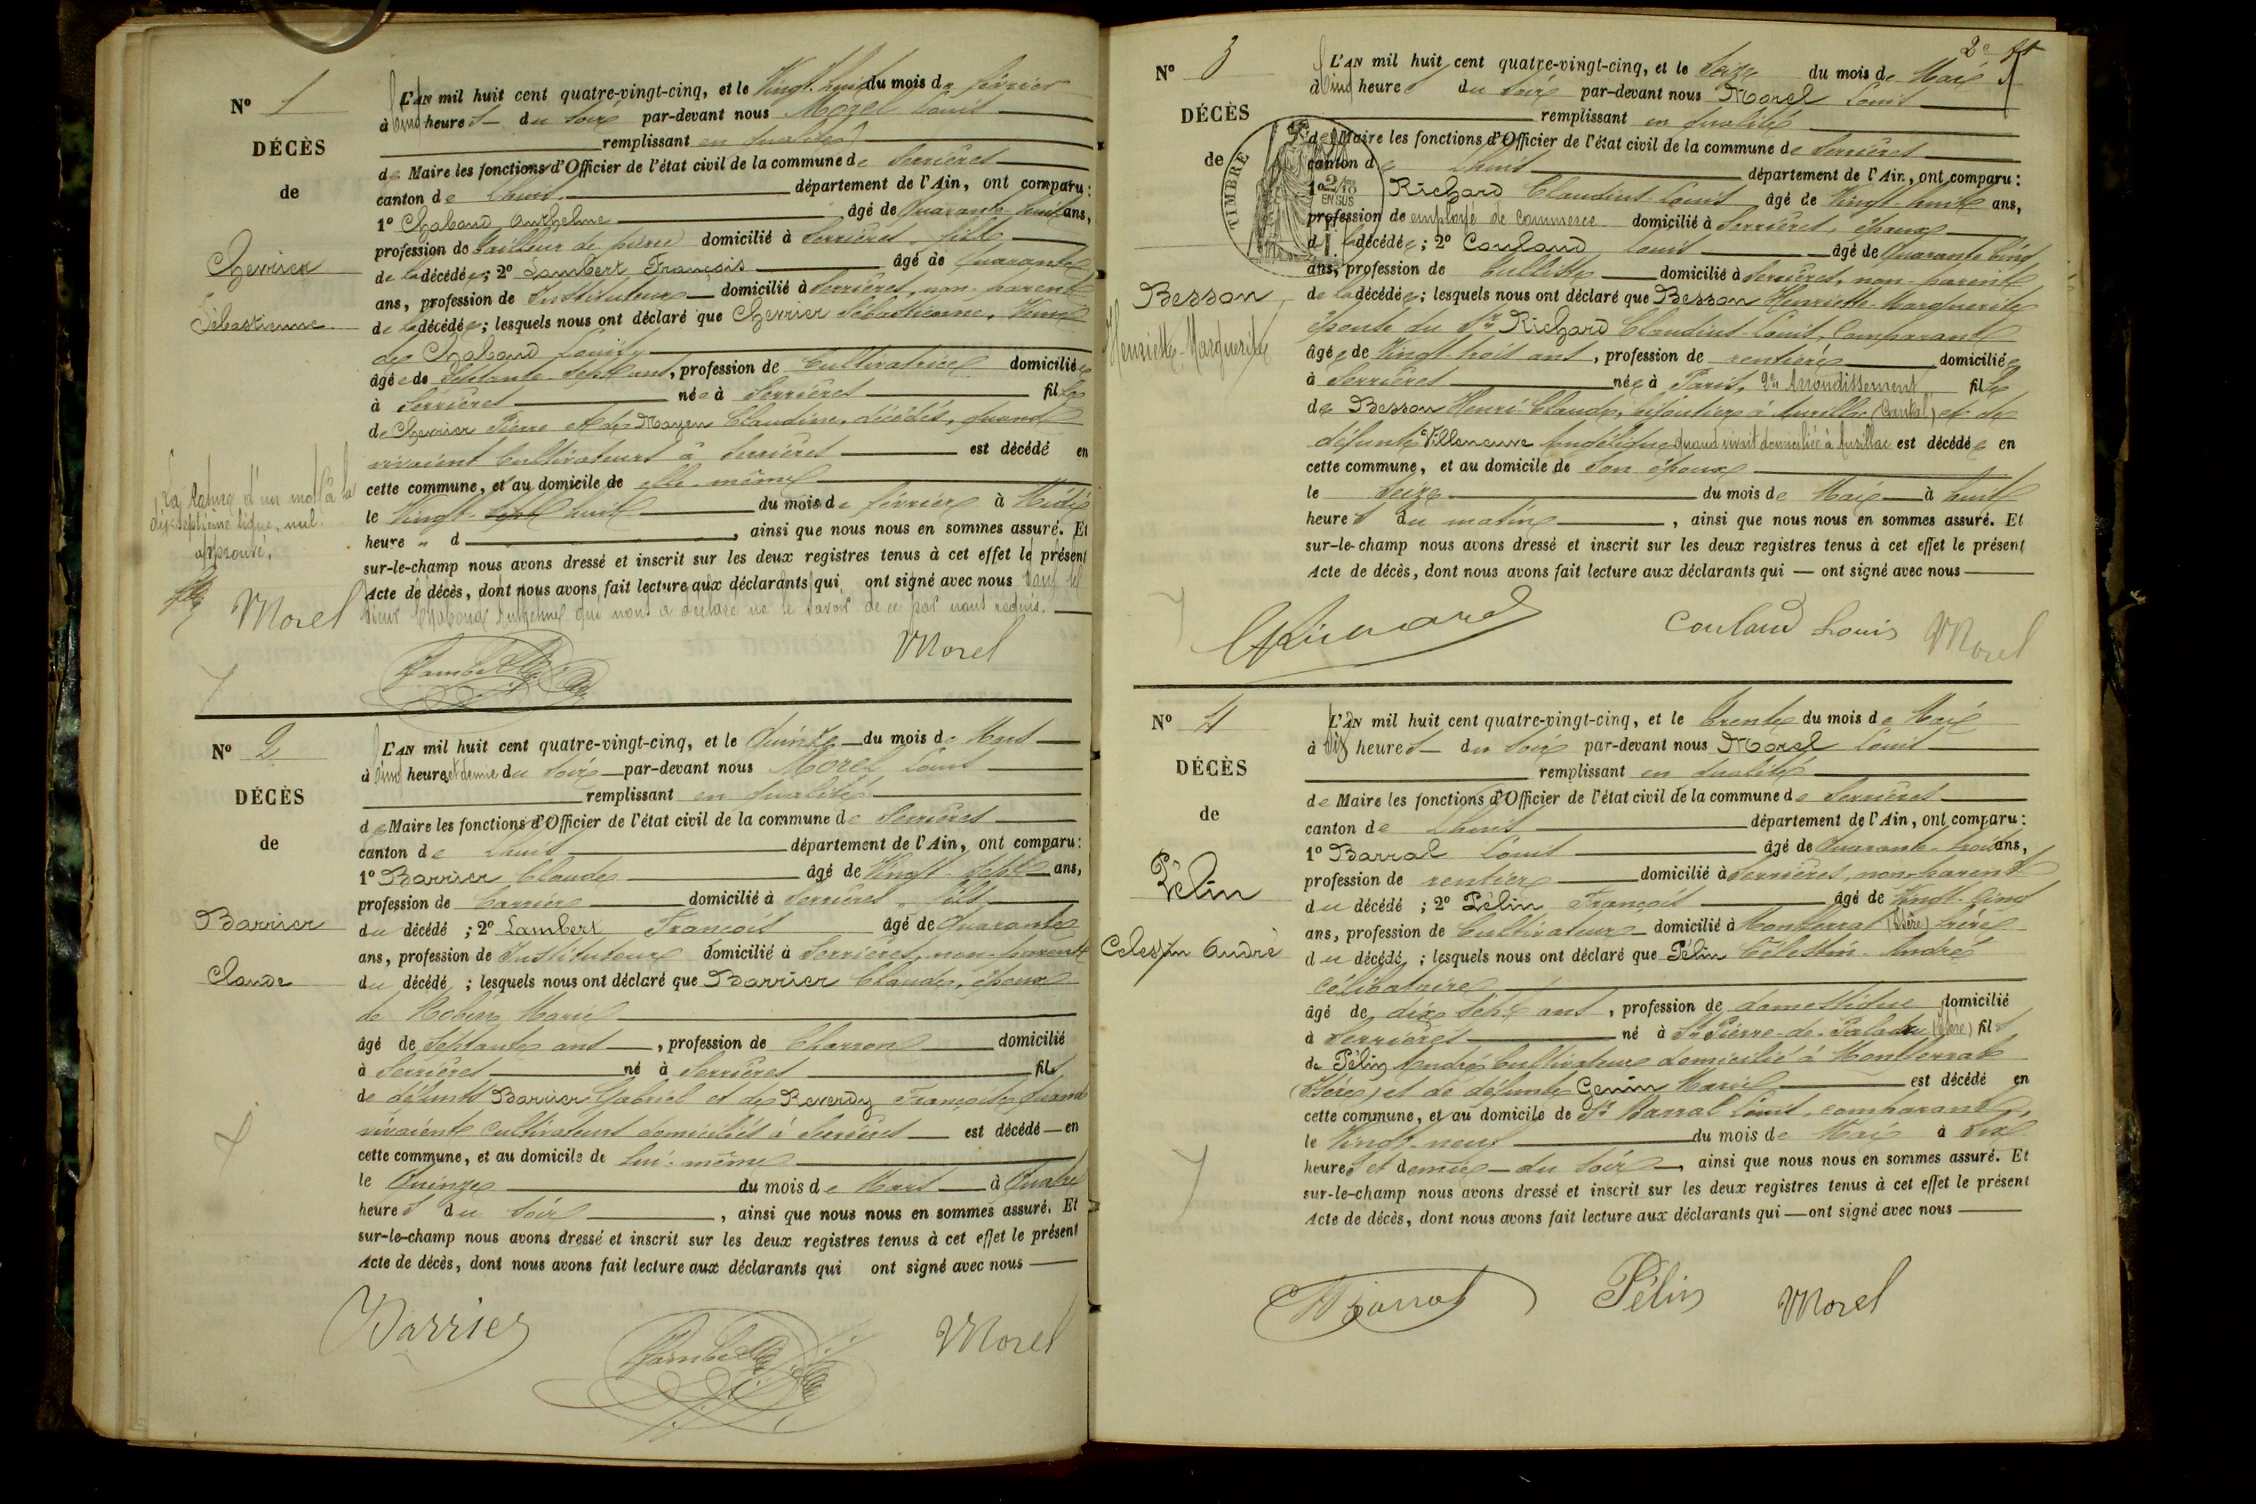 N° 1
DÉCÈS
de
Chevrier
Sébastienne
La rature d'un mot à la
dix-septième ligne, nul.
approuvé.
Morel
L'AN mil huit cent quatre-vingt-cinq, et le Vingt-huit du mois de février
à cinq heures du soir par-devant nous Morel Louis
remplissant en qualité
de Maire les fonctions d'Officier de l'état civil de la commune de Serrières
canton de Lhuis département de l'Ain, ont comparu :
1° Chaboud Anthelme âgé de Quarante-huit ans,
profession de tailleur de pierre domicilié à Serrières, fils
de la décédée ; 2° Lambert François âgé de Quarante
ans, profession de Instituteur domicilié à Serrières, non-parent
de la décédée ; lesquels nous ont déclaré que Chevrier Sébastienne, Veuve
de Chaboud Louis
âgée de Septante-sept ans, profession de Cultivatrice domiciliée
à Serrières née à Serrières fille
de Chevrier Pierre et de Moyen Claudine, décédés, quand
vivaient Cultivateurs à Serrières est décédé en
cette commune, et au domicile de elle-même
le Vingt-sept huit du mois de février à Midi
heure " d , ainsi que nous nous en sommes assuré. Et
sur-le-champ nous avons dressé et inscrit sur les deux registres tenus à cet effet le présent
Acte de décès, dont nous avons fait lecture aux déclarants qui ont signé avec nous sauf le
sieur Chaboud Anthelme qui nous a déclaré ne le savoir de ce par nous requis.
Lambert
Morel
N° 2
DÉCÈS
de
Barrier
Claude
L'AN mil huit cent quatre-vingt-cinq, et le Quinze du mois de Mars
à cinq heures et demie du soir par-devant nous Morel Louis
remplissant en qualité
de Maire les fonctions d'Officier de l'état civil de la commune de Serrières
canton de Lhuis département de l'Ain, ont comparu :
1° Barrier Claude âgé de Vingt-sept ans,
profession de Carrier domicilié à Serrières, fils
du décédé ; 2° Lambert François âgé de Quarante
ans, profession de Instituteur domicilié à Serrières, non-parent
du décédé ; lesquels nous ont déclaré que Barrier Claude, époux
de Robin Marie
âgé de Septante ans, profession de Charron domicilié
à Serrières né à Serrières fils
de défunts Barrier Gabriel et de Reverdy Françoise quand
vivaient cultivateurs domiciliés à Serrières est décédé en
cette commune, et au domicile de lui-même
le Quinze du mois de Mars à Quatre
heures du soir , ainsi que nous nous en sommes assuré. Et
sur-le-champ nous avons dressé et inscrit sur les deux registres tenus à cet effet le présent
Acte de décès, dont nous avons fait lecture aux déclarants qui ont signé avec nous
Barrier
Lambert
Morel
2e ft
N° 3
DÉCÈS
de
TIMBRE
2/10 EN SUS
Besson
Henriette-Marguerite
L'AN mil huit cent quatre-vingt-cinq, et le Seize du mois de Mai
à cinq heures du soir par-devant nous Morel Louis
remplissant en qualité
de Maire les fonctions d'Officier de l'état civil de la commune de Serrières
canton de Lhuis département de l'Ain, ont comparu :
1° Richard Claudius-Louis âgé de Vingt-huit ans,
profession de employé de commerce domicilié à Serrières, époux
de la décédée ; 2° Couland Louis âgé de Quarante cinq
ans, profession de domicilié à Serrières, non-parent
de la décédée ; lesquels nous ont déclaré que Besson Henriette-Marguerite
épouse du Sr Richard Claudius-Louis, Comparant
âgée de Vingt-trois ans, profession de rentière domiciliée
à Serrières née à Paris, 2e Arrondissement fille
de Besson Henri-Claude, bijoutier à Aurillac (Cantal) et de
défunte Villeneuve Angélique quand vivait domiciliée à Aurillac est décédée en
cette commune, et au domicile de son époux
le Seize du mois de Mai à huit
heures du matin , ainsi que nous nous en sommes assuré. Et
sur-le-champ nous avons dressé et inscrit sur les deux registres tenus à cet effet le présent
Acte de décès, dont nous avons fait lecture aux déclarants qui — ont signé avec nous
Richard
Couland Louis
Morel
N° 4
DÉCÈS
de
Pélin
Celestin André
L'AN mil huit cent quatre-vingt-cinq, et le Trente du mois de Mai
à six heures du soir par-devant nous Morel Louis
remplissant en qualité
de Maire les fonctions d'Officier de l'état civil de la commune de Serrières
canton de Lhuis département de l'Ain, ont comparu :
1° Barral Louis âgé de Quarante-trois ans,
profession de rentier domicilié à Serrières, non-parent
du décédé ; 2° Pélin François âgé de Vingt-cinq
ans, profession de Cultivateur domicilié à Montferrat (Isère) frère
du décédé ; lesquels nous ont déclaré que Pélin Célestin-André
Célibataire
âgé de dix sept ans, profession de domestique domicilié
à Serrières né à St Pierre-de-Paladru (Isère) fils
de Pélin André Cultivateur domicilié à Montferrat
(Isère) et de défunte Genin Marie est décédé en
cette commune, et au domicile de Sr Barral Louis, comparant,
le Vingt-neuf du mois de Mai à six
heures et demie du soir , ainsi que nous nous en sommes assuré. Et
sur-le-champ nous avons dressé et inscrit sur les deux registres tenus à cet effet le présent
Acte de décès, dont nous avons fait lecture aux déclarants qui — ont signé avec nous
Barral
Pélin
Morel